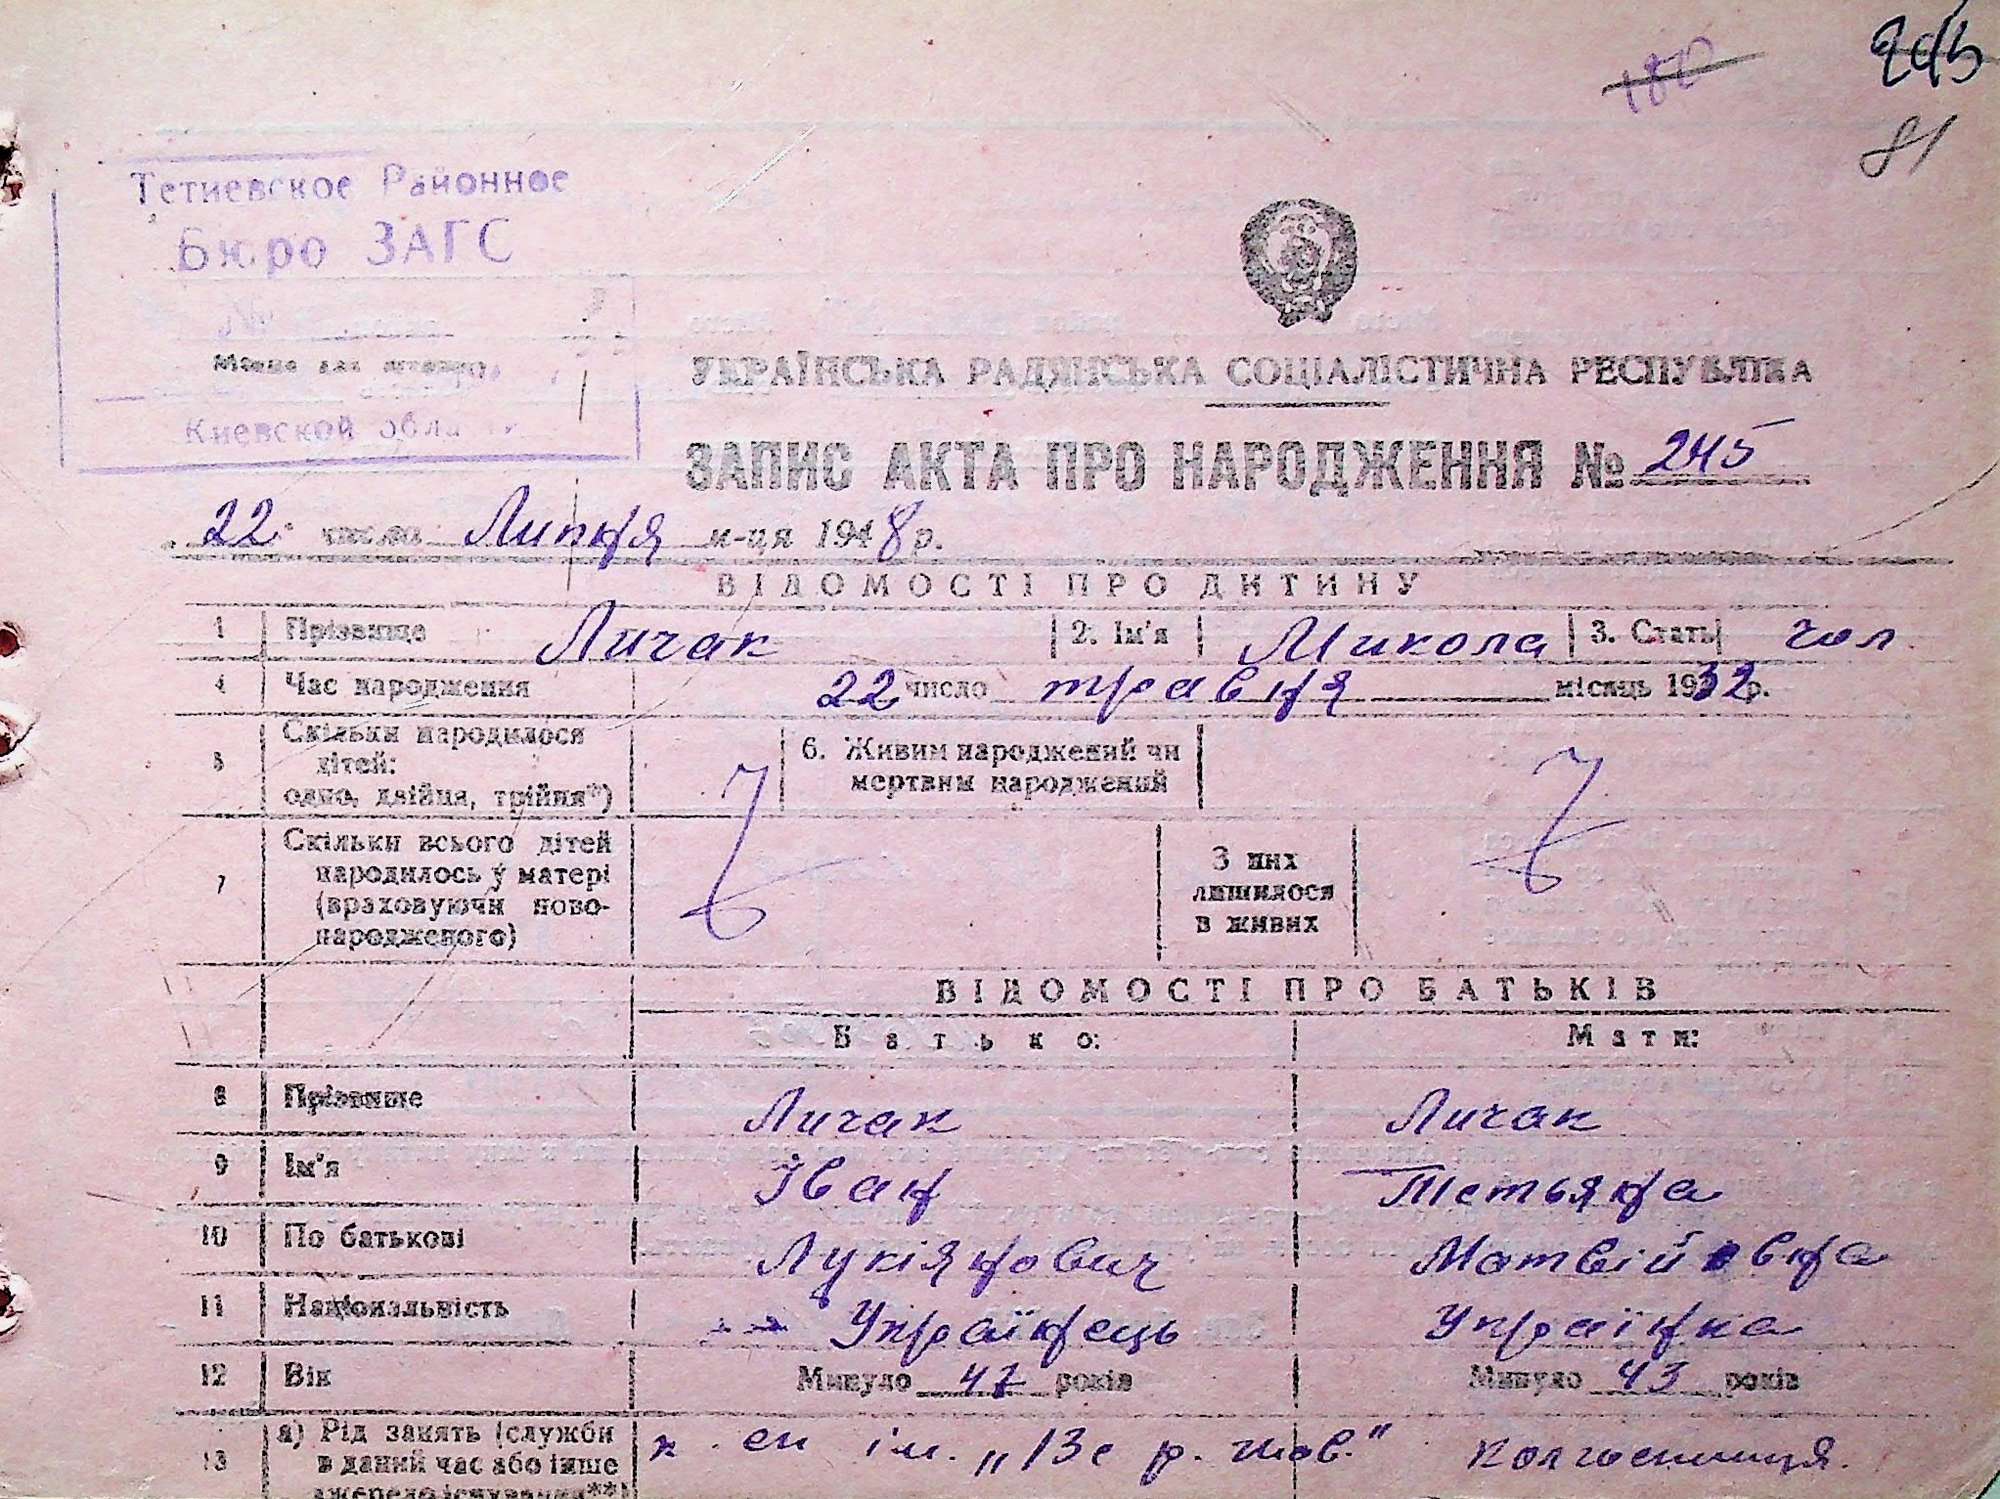 245
180
81
Тетиевское Районное
Бюро ЗАГС
№
Киевской области
УКРАЇНСЬКА РАДЯНСЬКА СОЦІАЛІСТИЧНА РЕСПУБЛІКА
ЗАПИС АКТА ПРО НАРОДЖЕННЯ № 245
22 числа Липня м-ця 1948 р.
ВІДОМОСТІ ПРО ДИТИНУ
1 Прізвище Личак 2. Ім'я Микола 3. Стать чол.
4 Час народження 22 число травня місяць 1932 р.
5 Скільки народилося дітей: одно, двійня, трійня*) 6. Живим народжений чи мертвим народжений
7 Скільки всього дітей народилось у матері (враховуючи новонародженого) 7 З них лишилося в живих 7
ВІДОМОСТІ ПРО БАТЬКІВ
Батько: Мати:
8 Прізвище Личак Личак
9 Ім'я Іван Тетьяна
10 По батькові Лукіянович Матвійовна
11 Національність Українець Українка
12 Вік Минуло 47 років Минуло 43 років
13 а) Рід занять (служби в даний час або інше джерело існування**) к. ен ім. колгоспниця.